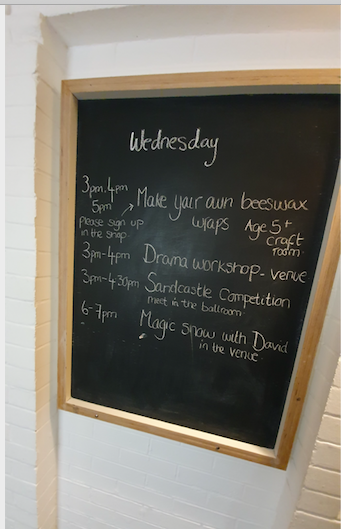 Wednesday
3pm, 4pm
5pm → Make your own beeswax
wraps Age 5+
please sign up
in the shop
craft
room
3pm-4pm Drama workshop - venue
3pm-4:30pm Sandcastle Competition
meet in the ballroom
6-7pm Magic show with David
in the venue